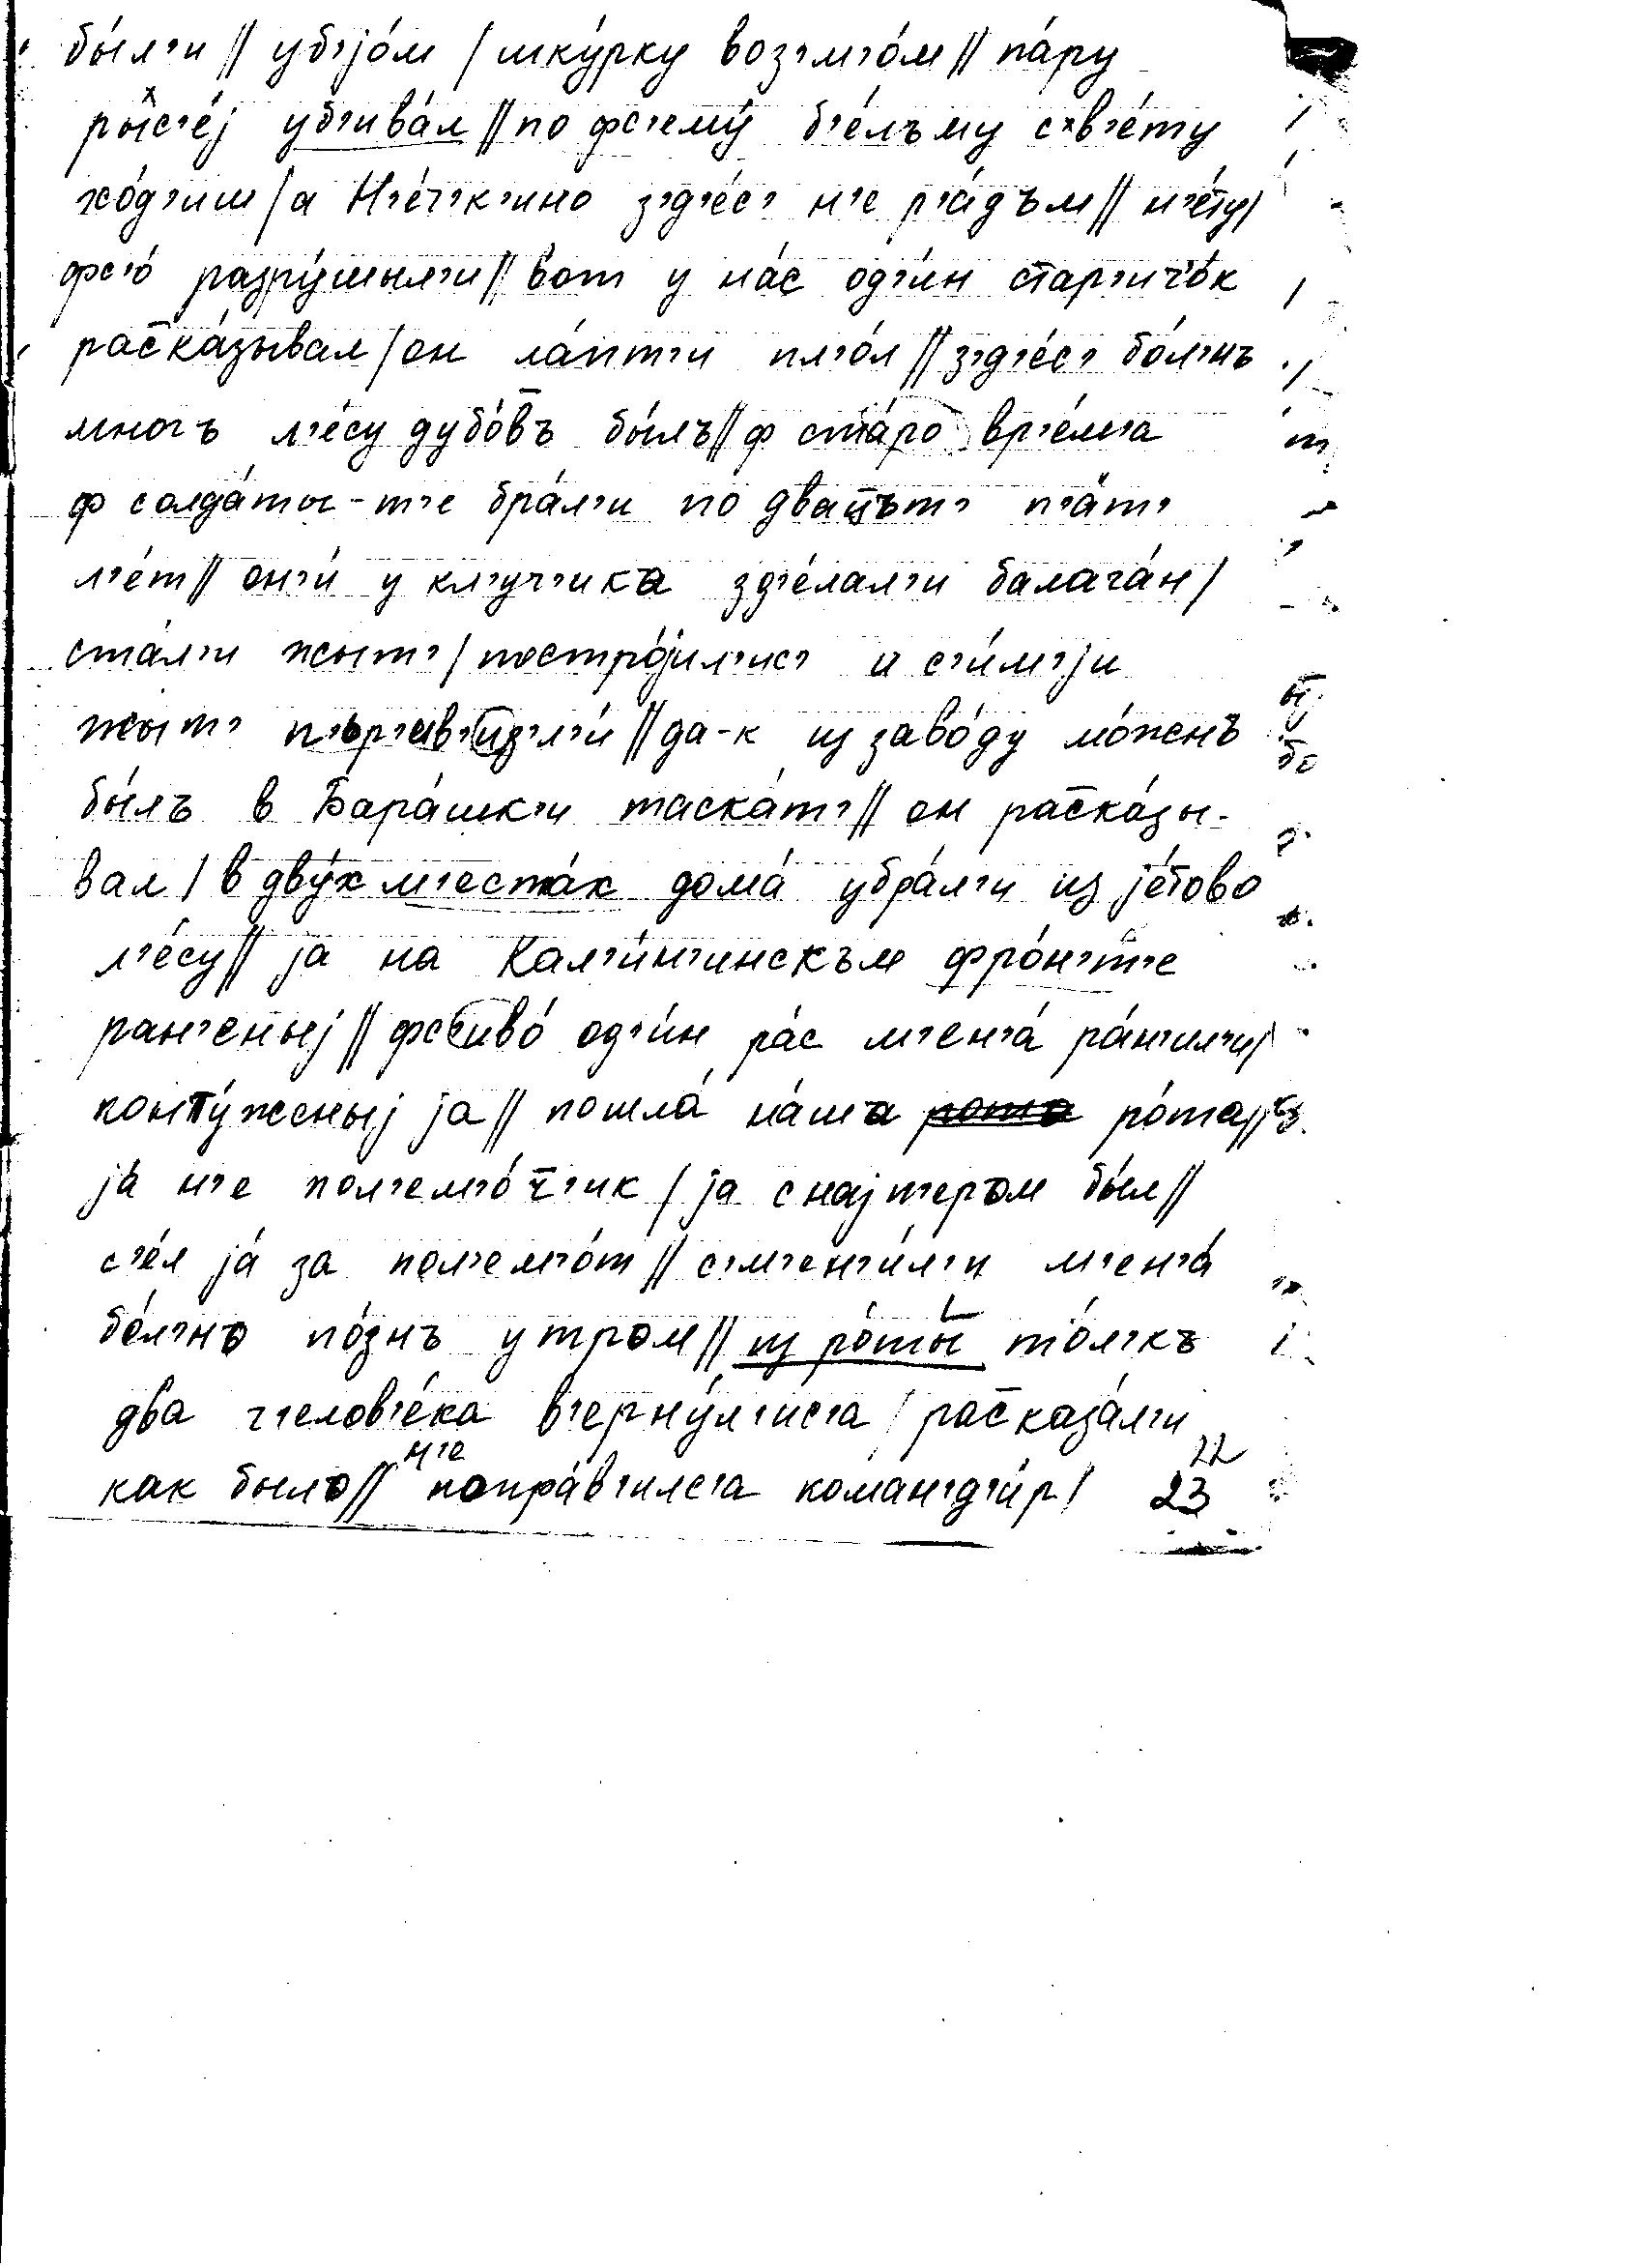 бы́л’и // уб’jо́м / шку́рку воз’м’о́м // па́ру
ры̂с’е́j уб’ива́л // по фс’ему́ б’е́лъму с’в’е́ту
хо́д’иш / а Н’е́ч’к’ино з’д’е́с’ н’е р’а́дъм // н’е́ту /
фс’о́ разру́шыл’и // вот у на́с од’и́н стар’ичо́к
расска́зывал / он ла́пт’и пл’о́л // з’д’е́с’ бо́л’нъ
многъ л’е́су дубо́въ бы́лъ // ф ста́ро вр’е́м’а
ф солда́ты-т’е бра́л’и по двацът’ п’а́т’
л’е́т // он’и́ у кл’уч’ика зд’е́лал’и балага́н /
ста́л’и жыт’ / постро́jил’ис’ и с’и́м’jи
жыт’ п’ър’ив’изл’и́ // да-к из заво́ду мо́жнъ
бы́лъ в Бара́шк’и таска́т’ // он расска́зы-
вал / в дву́х м’еста́к дома́ убра́л’и из jе́тово
л’е́су // jа на Кал’и́н’инскъм фро́н’т’е
ран’еныj // фс’иво́ од’и́н ра́с м’ен’а́ ра́н’ил’и /
конту́женыj jа // пошла́ на́ша рота ро́та //
jа́ н’е пол’ем’о́тч’ик / jа снаjп’ером бы́л //
с’е́л jа́ за пол’ем’о́т // с’м’ен’и́л’и м’ен’а́
бо́л’но по́знъ утром // из ро́ты́ то́л’къ
два ч’елов’е́ка в’ерну́л’ис’а / рассказа́л’и
как было // н’е понра́в’илс’а коман’д’и́р / 22
23